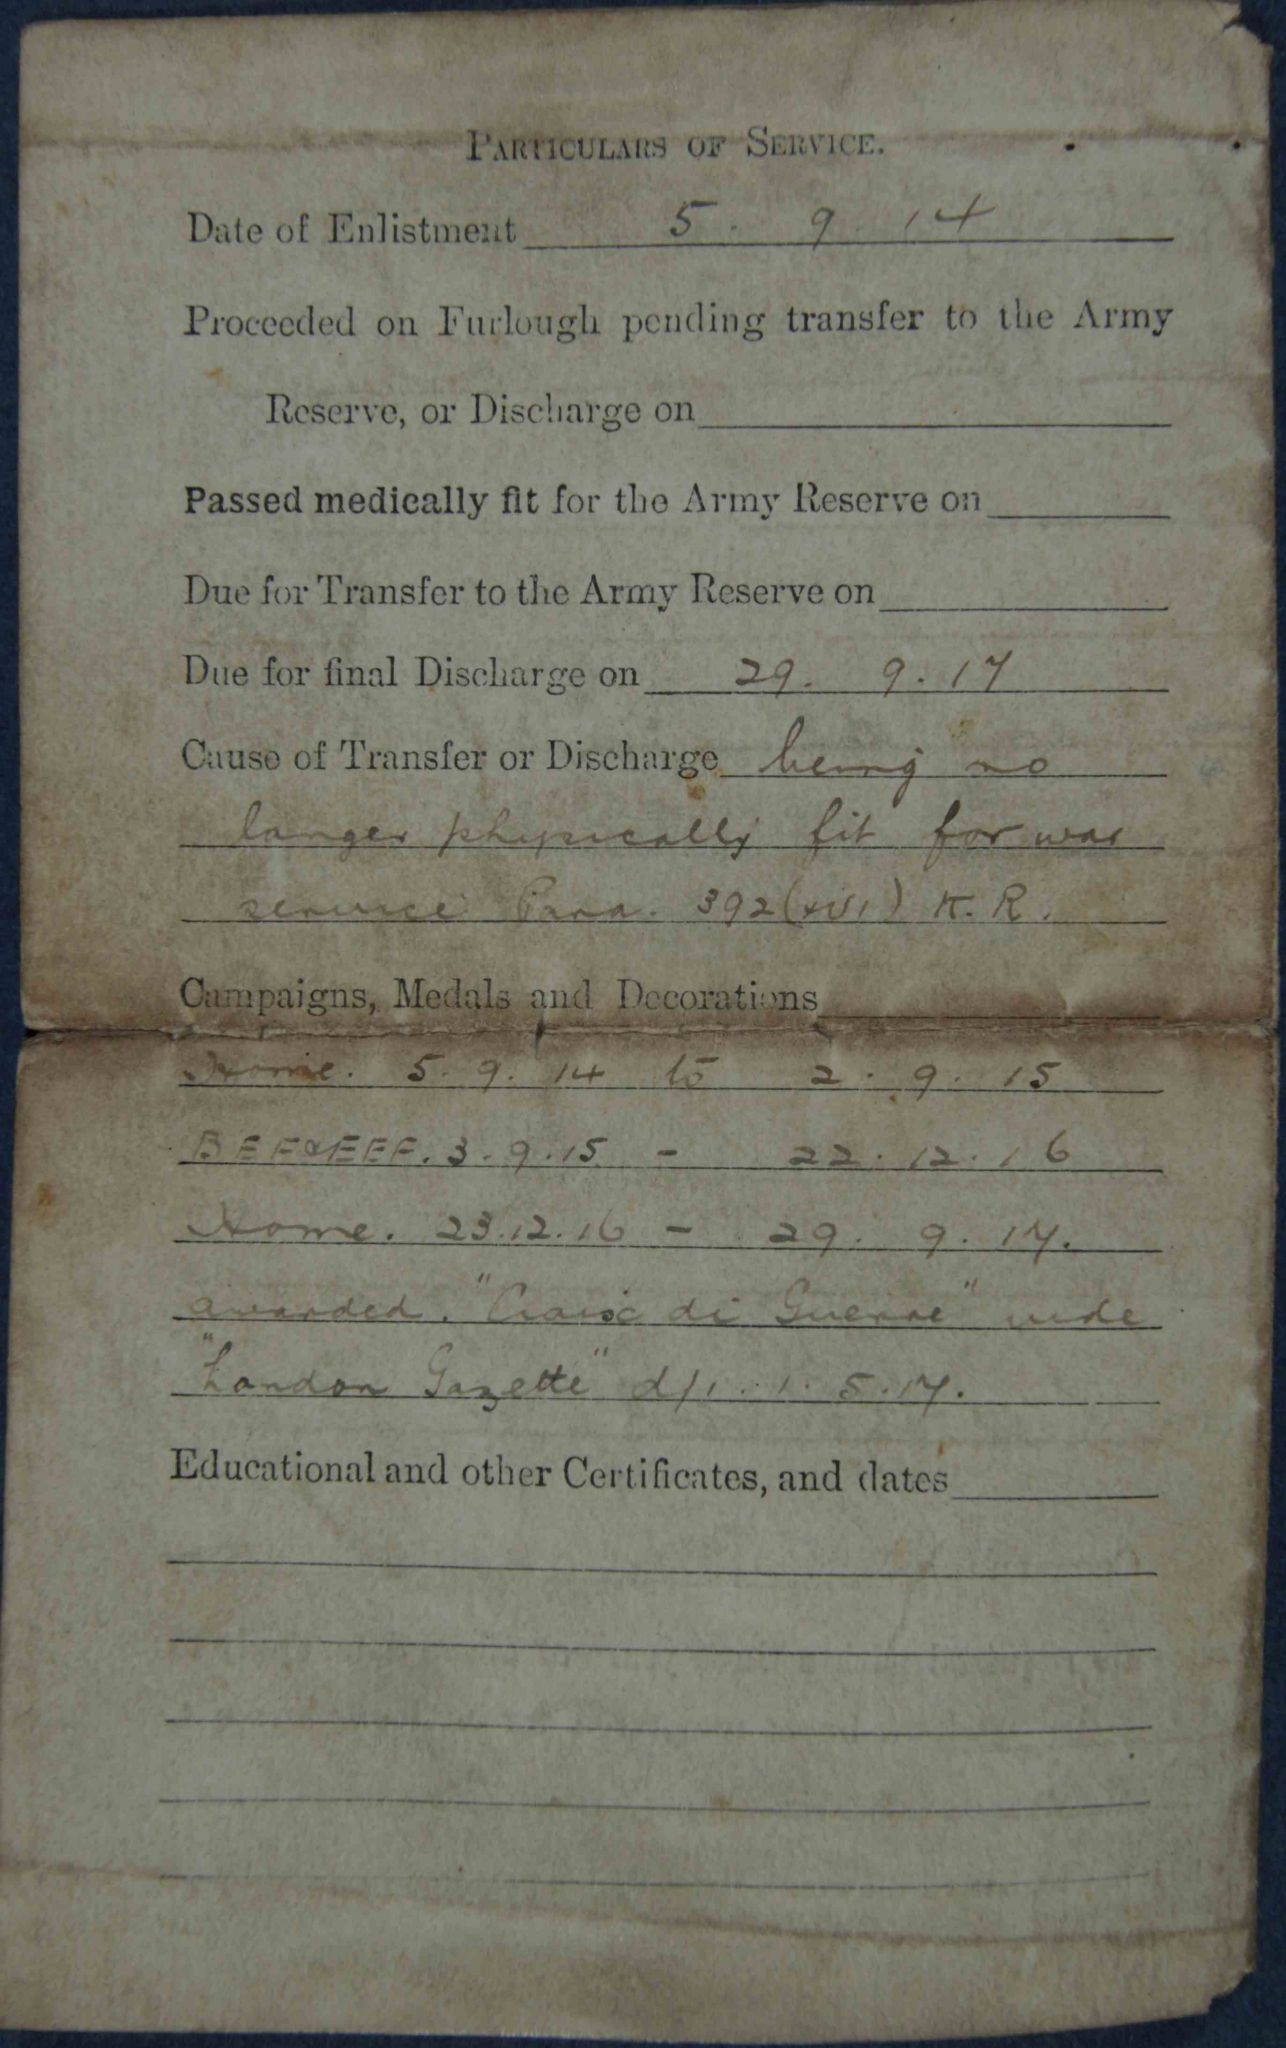 PARTICULARS OF SERVICE.
Date of Enlistment 5. 9. 14
Proceeded on Furlough pending transfer to the Army
Reserve, or Discharge on
Passed medically fit for the Army Reserve on
Due for Transfer to the Army Reserve on
Due for final Discharge on 29. 9. 17
Cause of Transfer or Discharge being no
longer physically fit for war
service Para. 392 (xvi) K.R.
Campaigns, Medals and Decorations
Home. 5. 9. 14 to 2. 9. 15
BEF & EEF. 3. 9. 15 - 22. 12. 16
Home. 23.12.16 - 29. 9. 17.
awarded. "Croix di Guerre" vide
"London Gazette" d/1. 1. 5. 17.
Educational and other Certificates, and dates